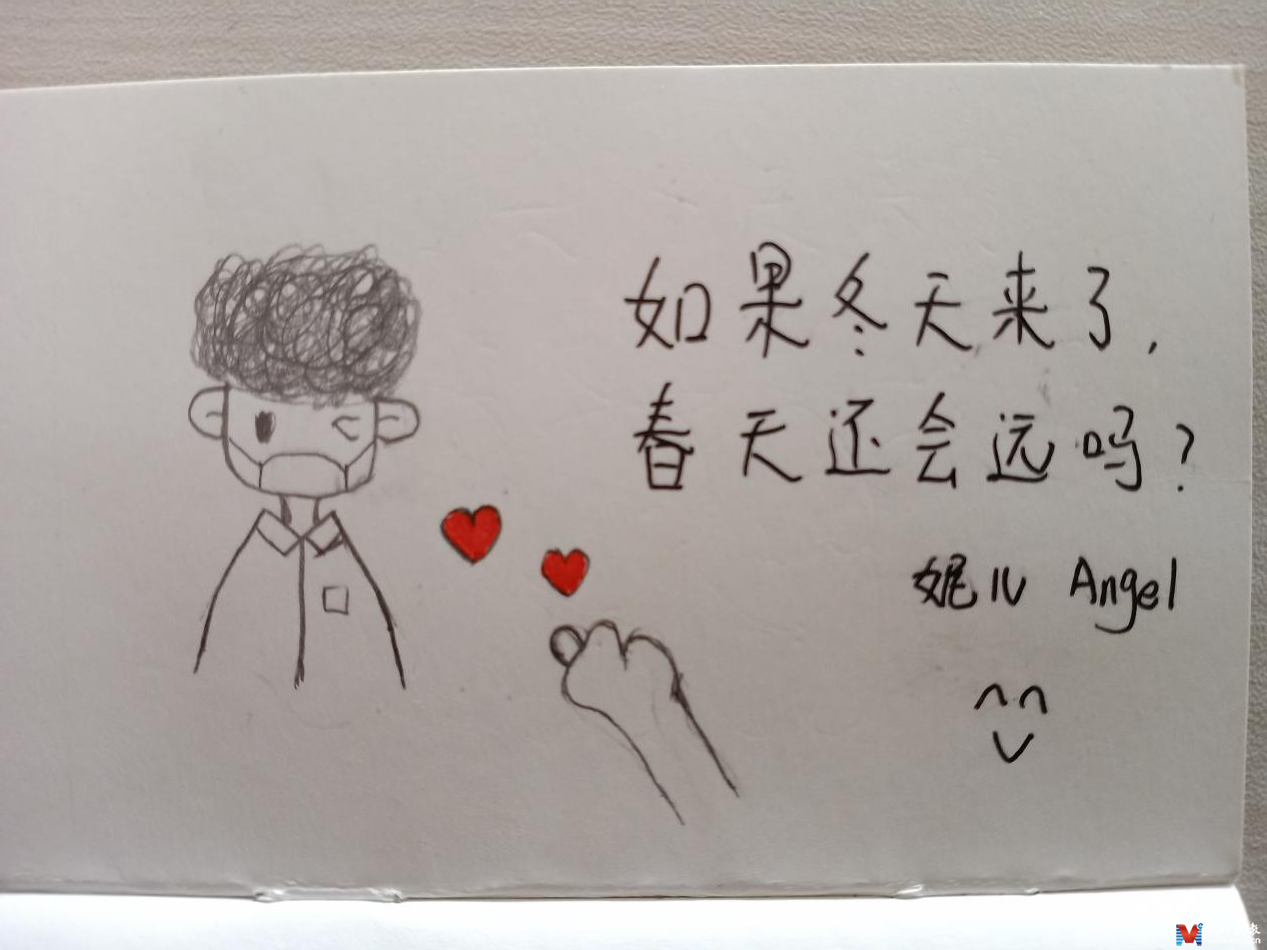 如果冬天来了,
春天还会远吗?
妮儿 Angel